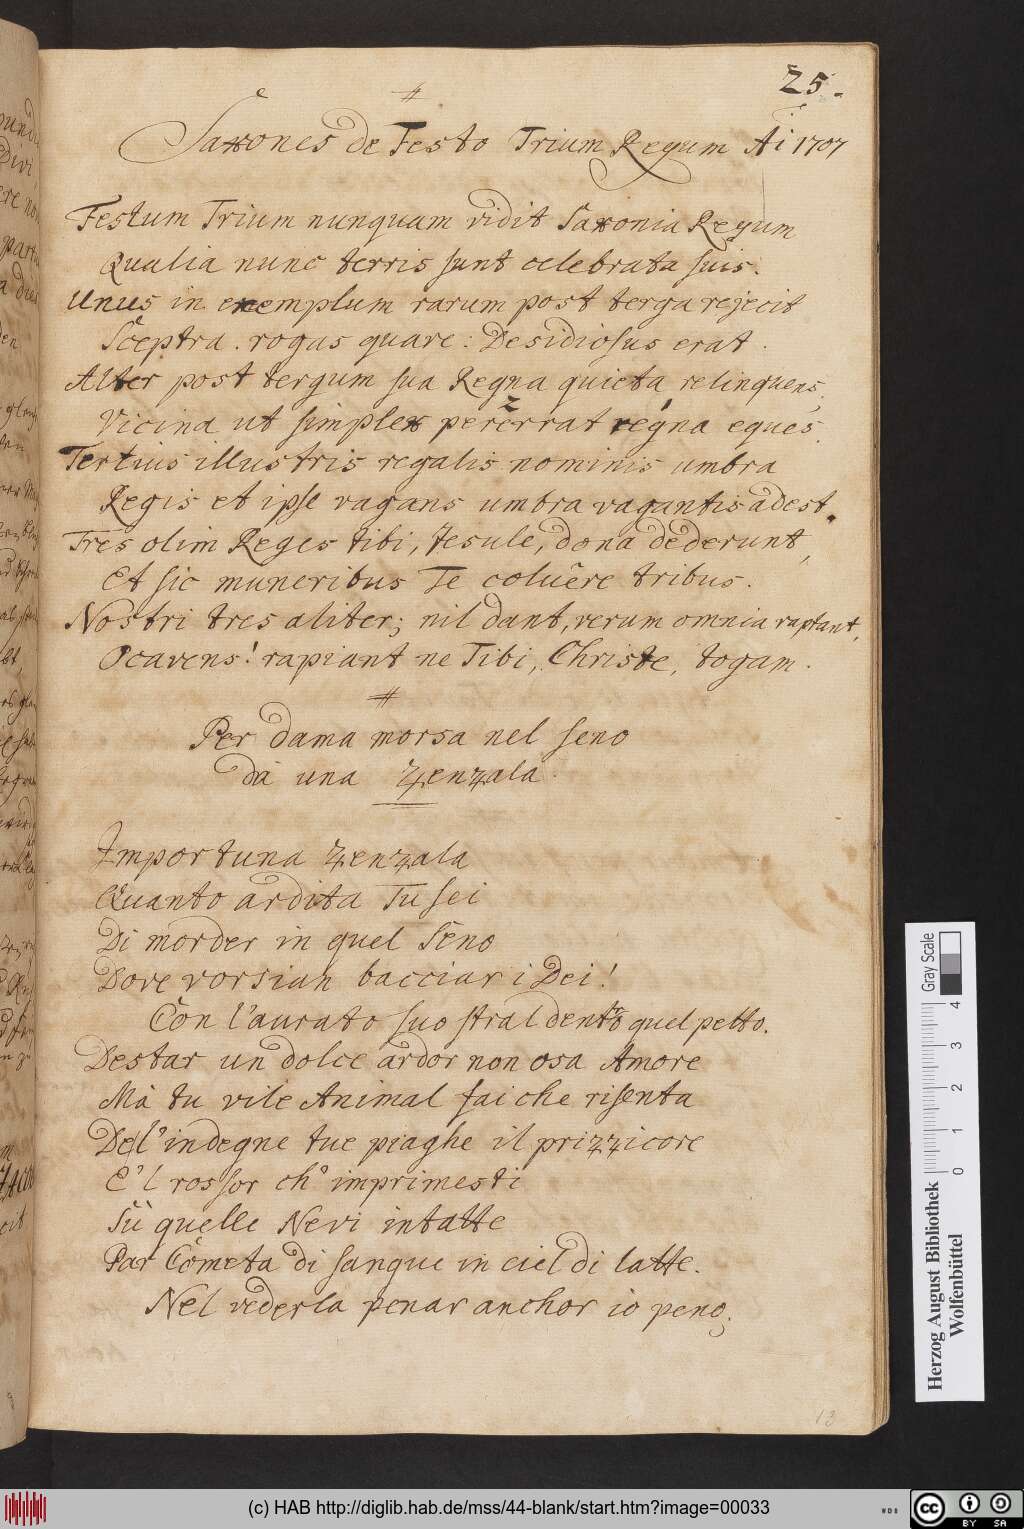 25.
Saxones de Festo Trium Regum Ai 1707
Festum Trium nunquam vidit Saxonia Regum
Qualia nunc terris sunt celebrata suis.
Unus in exemplum rarum post terga rejecit
Sceptra. rogas quare: Desidiosus erat.
Alter post tergum sua Regna quieta relinquens,
Vicina ut simplex pererrat regna eques.
Tertius illustris regalis nominis umbra
Regis et ipse vagans umbra vagantis adest.
Tres olim Reges tibi, Jesule, dona dederunt,
Et sic muneribus Te coluêre tribus.
Nostri tres aliter; nil dant, verum omnia raptant,
O cavens! rapiant ne Tibi, Christe, togam.
Per dama morsa nel seno
dà una Zenzala.
Importuna Zenzala
Quanto ardita Tu sei
Di morder in quel Seno
Dove vorsian bacciar i Dei!
Con l'aurato suo stral dentro quel petto.
Destar un dolce ardor non osa Amore
Mà tu vile Animal fai che risenta
Del' indegne tue piaghe il prizzicore
E'l rossor ch' imprimesti
Sù quelle Nevi intatte
Par Cometa di sangue in ciel di latte.
Nel vederla penar anchor io peno;
13
Gray Scale
0 1 2 3 4
Herzog August Bibliothek
Wolfenbüttel
(c) HAB http://diglib.hab.de/mss/44-blank/start.htm?image=00033
WDB
cc BY SA